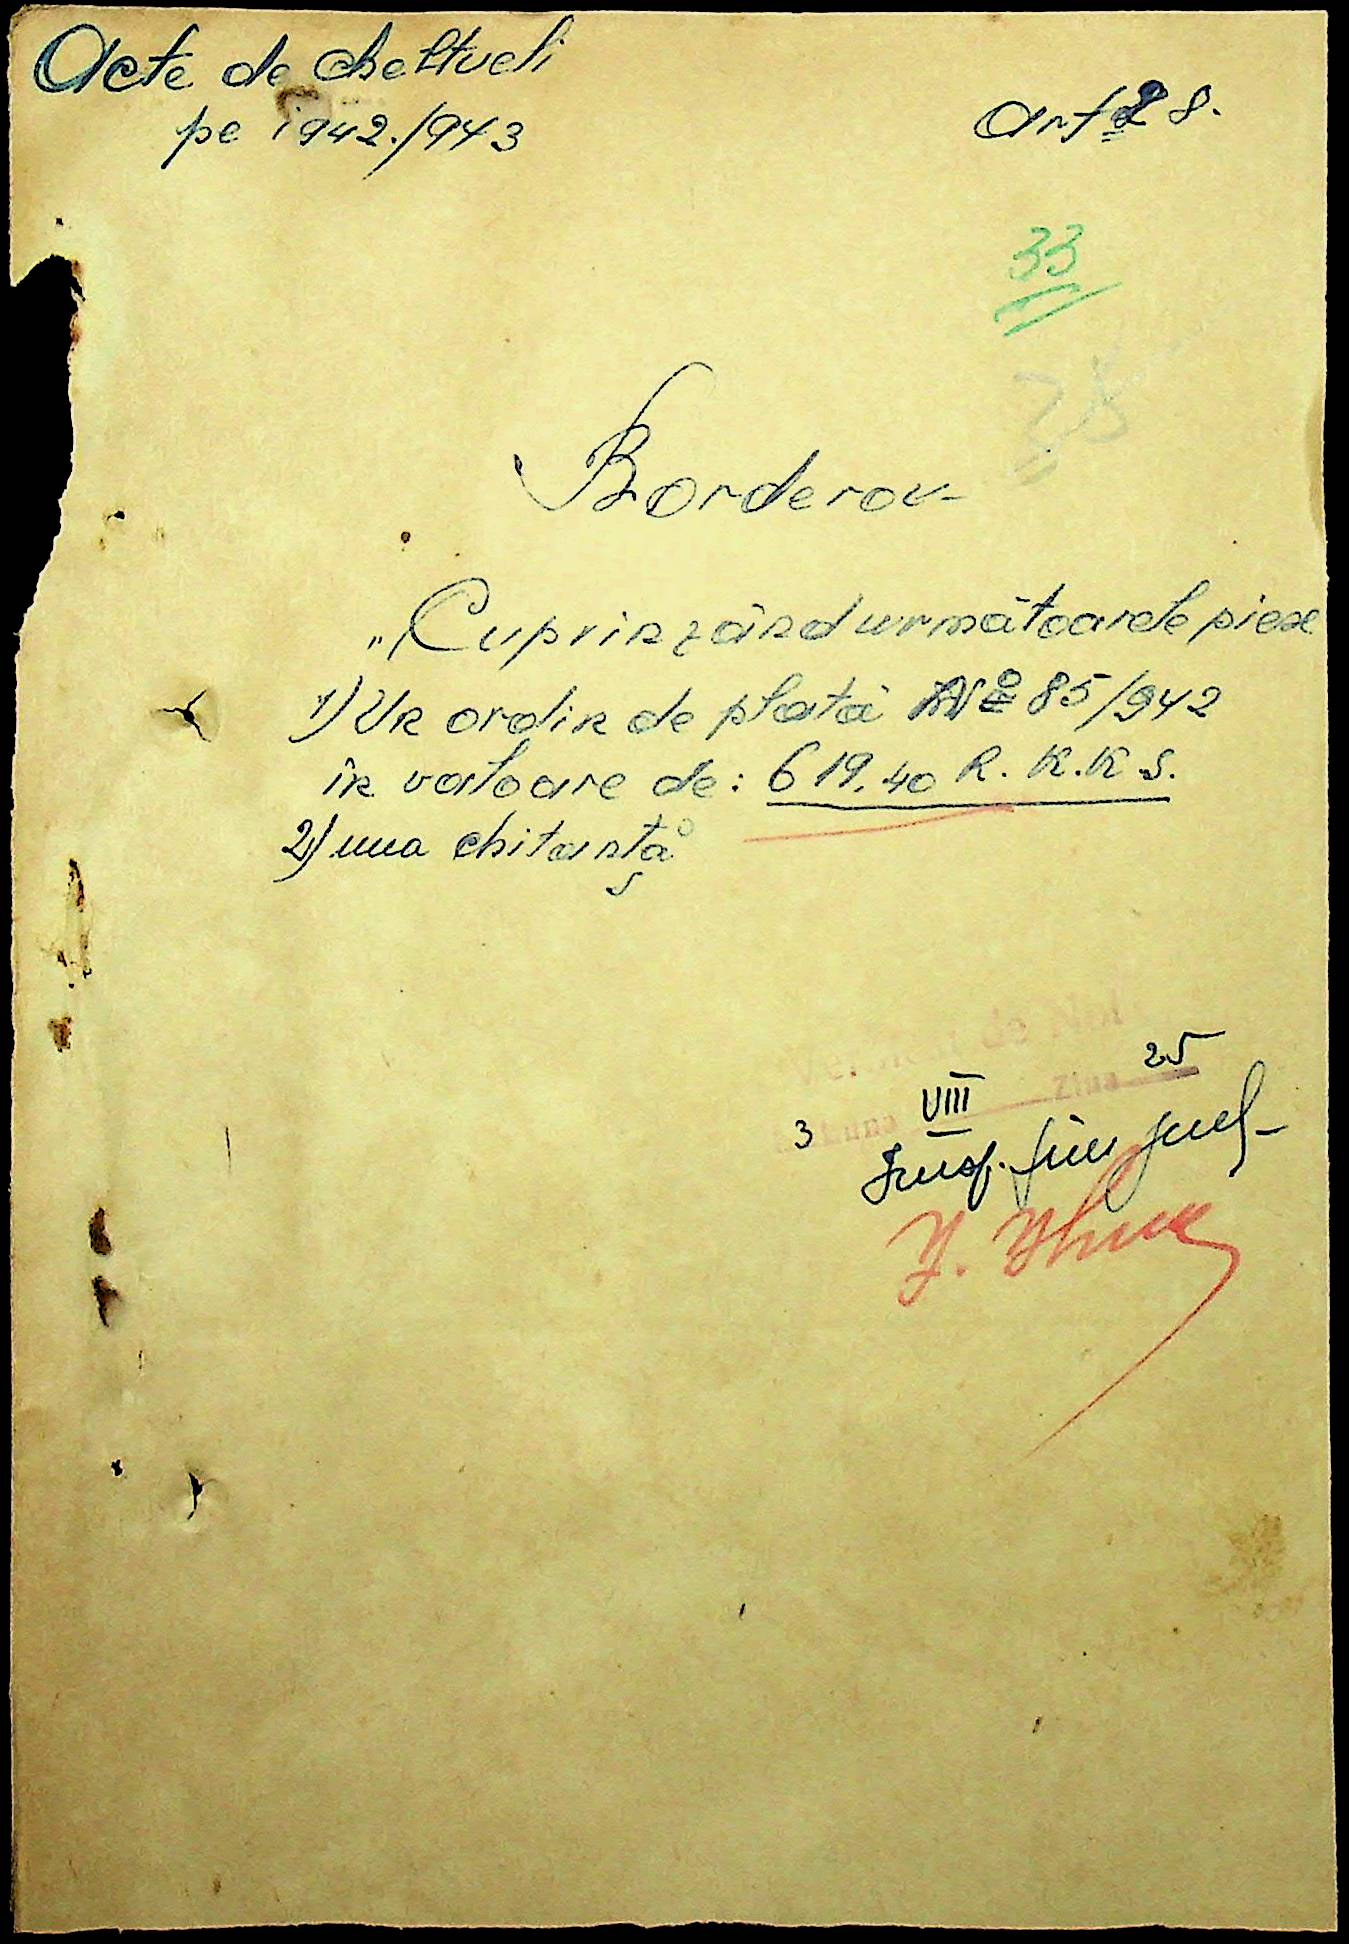 Acte de cheltueli
pe 1942./943
Art 28.
33
28
Borderou
„Cuprinzând următoarele piese
1) Un ordin de plată № 85/942
în valoare de: 619.40 R.K.K.S.
2) una chitanță
de
25
VIII
Ziua
3
Luna
Insp. fin